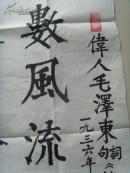 數風流
偉人毛澤東詞句
一九三六年